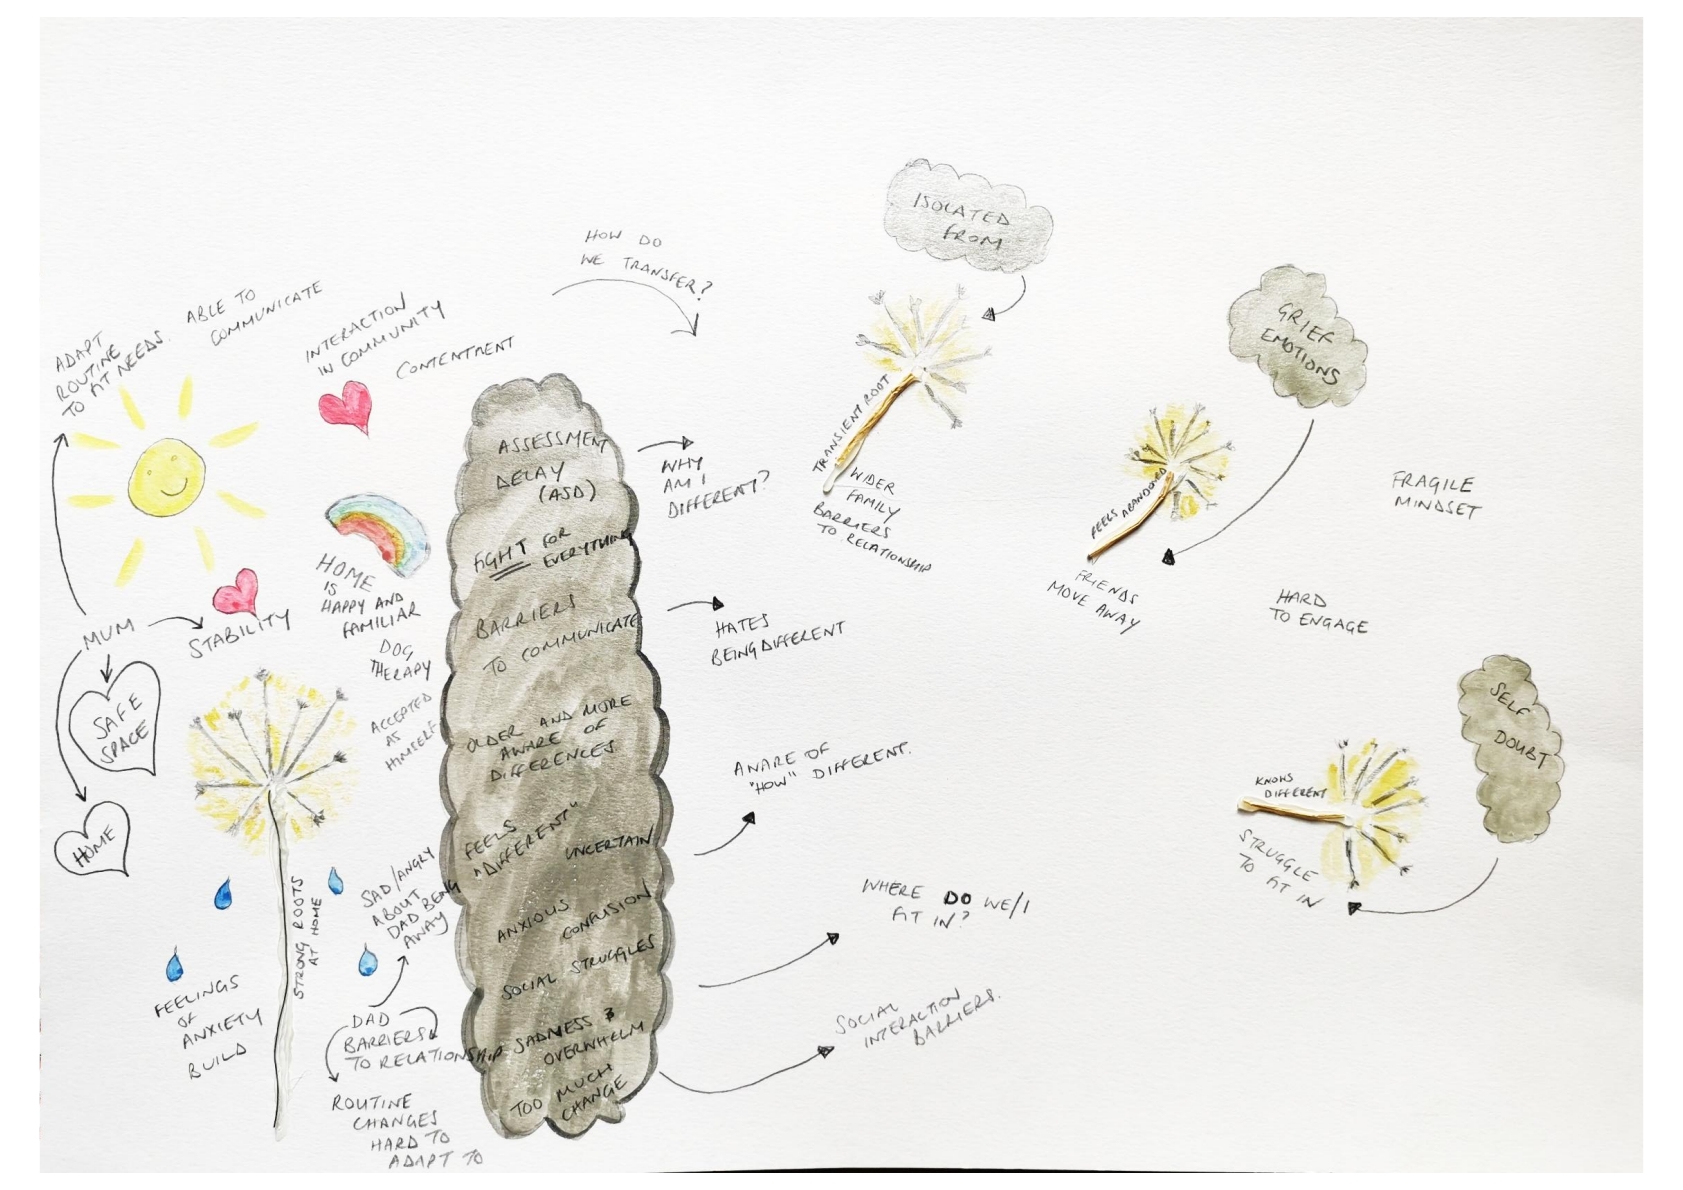 ADAPT
ROUTINE
TO FIT NEEDS.
ABLE TO
COMMUNICATE
INTERACTION
IN COMMUNITY
CONTENTMENT
HOW DO
WE TRANSFER?
MUM
STABILITY
SAFE
SPACE
HOME
HOME
IS
HAPPY AND
FAMILIAR
DOG
THERAPY
ACCEPTED
AS
HIMSELF
STRONG ROOTS
AT HOME
FEELINGS
OF
ANXIETY
BUILD
SAD/ANGRY
ABOUT
DAD BEING
AWAY
DAD
BARRIERS
TO RELATIONSHIP
ROUTINE
CHANGES
HARD TO
ADAPT TO
ASSESSMENT
DELAY
(ASD)
FIGHT FOR
EVERYTHING
BARRIERS
TO COMMUNICATE
OLDER AND MORE
AWARE OF
DIFFERENCES
FEELS
"DIFFERENT"
UNCERTAIN
ANXIOUS
CONFUSION
SOCIAL STRUGGLES
SADNESS &
OVERWHELM
TOO MUCH
CHANGE
WHY
AM I
DIFFERENT?
HATES
BEING DIFFERENT
AWARE OF
"HOW" DIFFERENT.
WHERE DO WE/I
FIT IN?
SOCIAL
INTERACTION
BARRIERS.
ISOLATED
FROM
TRANSIENT ROOT
WIDER
FAMILY
BARRIERS
TO RELATIONSHIP
GRIEF
EMOTIONS
FEELS ABANDONED
FRIENDS
MOVE AWAY
FRAGILE
MINDSET
HARD
TO ENGAGE
SELF
DOUBT
KNOWS
DIFFERENT
STRUGGLE
TO FIT IN